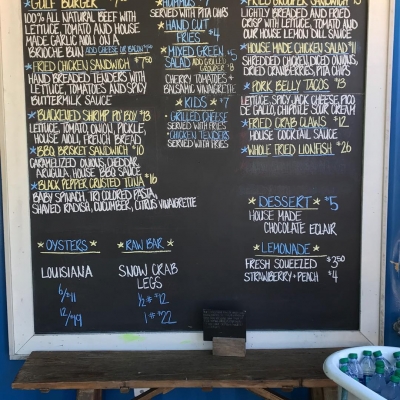 *GULF BURGER
100% ALL NATURAL BEEF WITH
LETTUCE, TOMATO AND HOUSE
MADE GARLIC MOLI ON A
BRIOCHE BUN ADD CHEESE OR BACON
*FRIED CHICKEN SANDWICH $7.50
HAND BREADED TENDERS WITH
LETTUCE, TOMATOES AND SPICY
BUTTERMILK SAUCE
*BLACKENED SHRIMP PO' BOY $13
LETTUCE, TOMATO, ONION, PICKLE,
HOUSE AIOLI, FRENCH BREAD
*BBQ BRISKET SANDWICH $10
CARAMELIZED ONIONS, CHEDDAR,
ARUGULA, HOUSE BBQ SAUCE
*BLACK PEPPER CRUSTED TUNA $16
BABY SPINACH, TRI COLORED PASTA,
SHAVED RADISH, CUCUMBER, CITRUS VINAIGRETTE
*HUMMUS
SERVED WITH PITA CHIPS
*HAND CUT
FRIES* $4
*MIXED GREEN $5
SALAD ADD GRILLED
GROUPER
CHERRY TOMATOES +
BALSAMIC VINAIGRETTE
*KIDS* $7
*GRILLED CHEESE
SERVED WITH FRIES
*CHICKEN TENDERS
SERVED WITH FRIES
*FRIED GROUPER SANDWICH
LIGHTLY BREADED AND FRIED
CRISP WITH LETTUCE, TOMATO AND
OUR HOUSE LEMON DILL SAUCE
*HOUSE MADE CHICKEN SALAD $11
SHREDDED CHICKEN, DICED ONIONS,
DRIED CRANBERRIES, PITA CHIPS
*PORK BELLY TACOS $13
LETTUCE, SPICY JACK CHEESE, PICO
DE GALLO, CHIPOTLE SOUR CREAM
*FRIED CRAB CLAWS $12
HOUSE COCKTAIL SAUCE
*WHOLE FRIED LIONFISH $26
*DESSERT* $5
HOUSE MADE
CHOCOLATE ECLAIR
*LEMONADE*
FRESH SQUEEZED $3.50
STRAWBERRY + PEACH $4
*OYSTERS*
LOUISIANA
6/$11
12/$19
*RAW BAR*
SNOW CRAB
LEGS
½# $12
1# $22